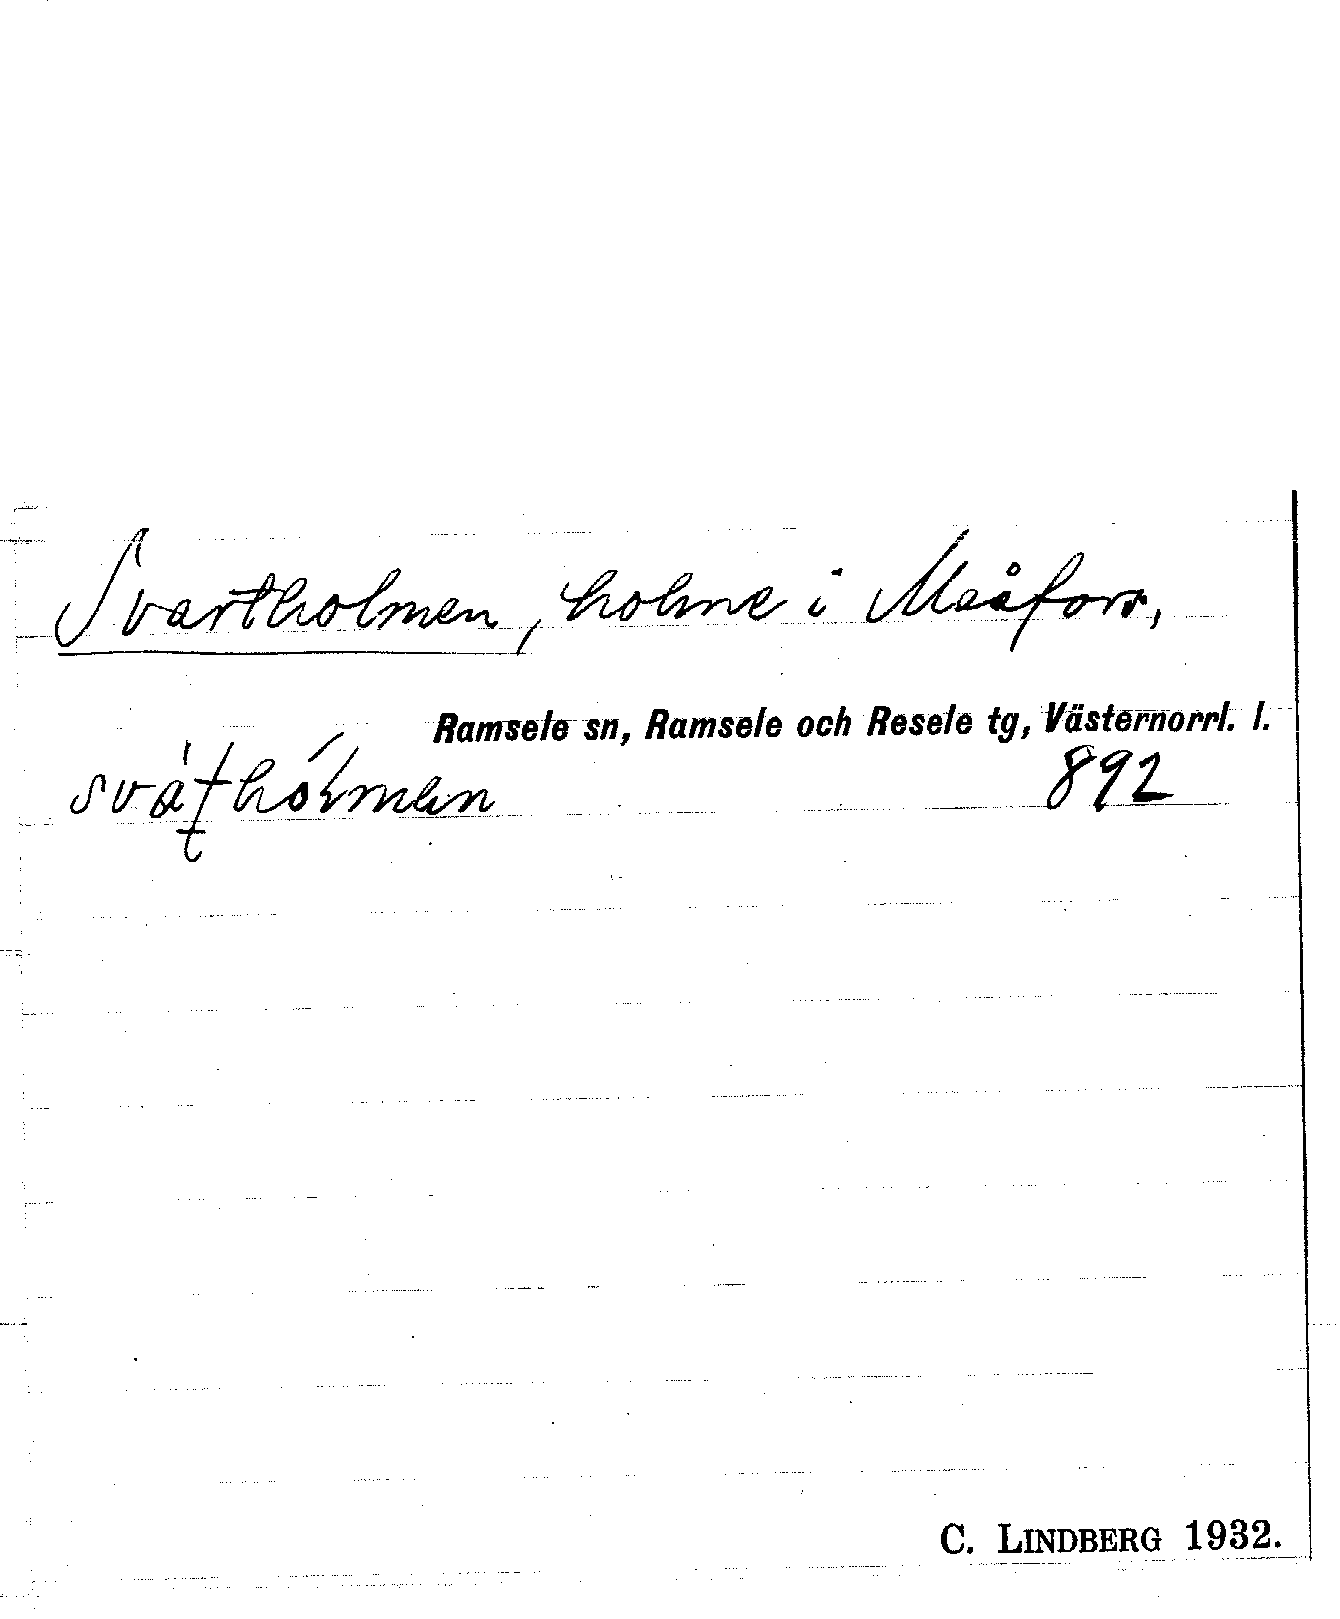 Svartholmen, holme i Maåfors,
Ramsele sn, Ramsele och Resele tg, Västernorrl. l.
892
C. LINDBERG 1932.